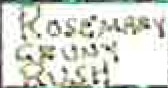 ROSEMARY
GRUNY
RUSH